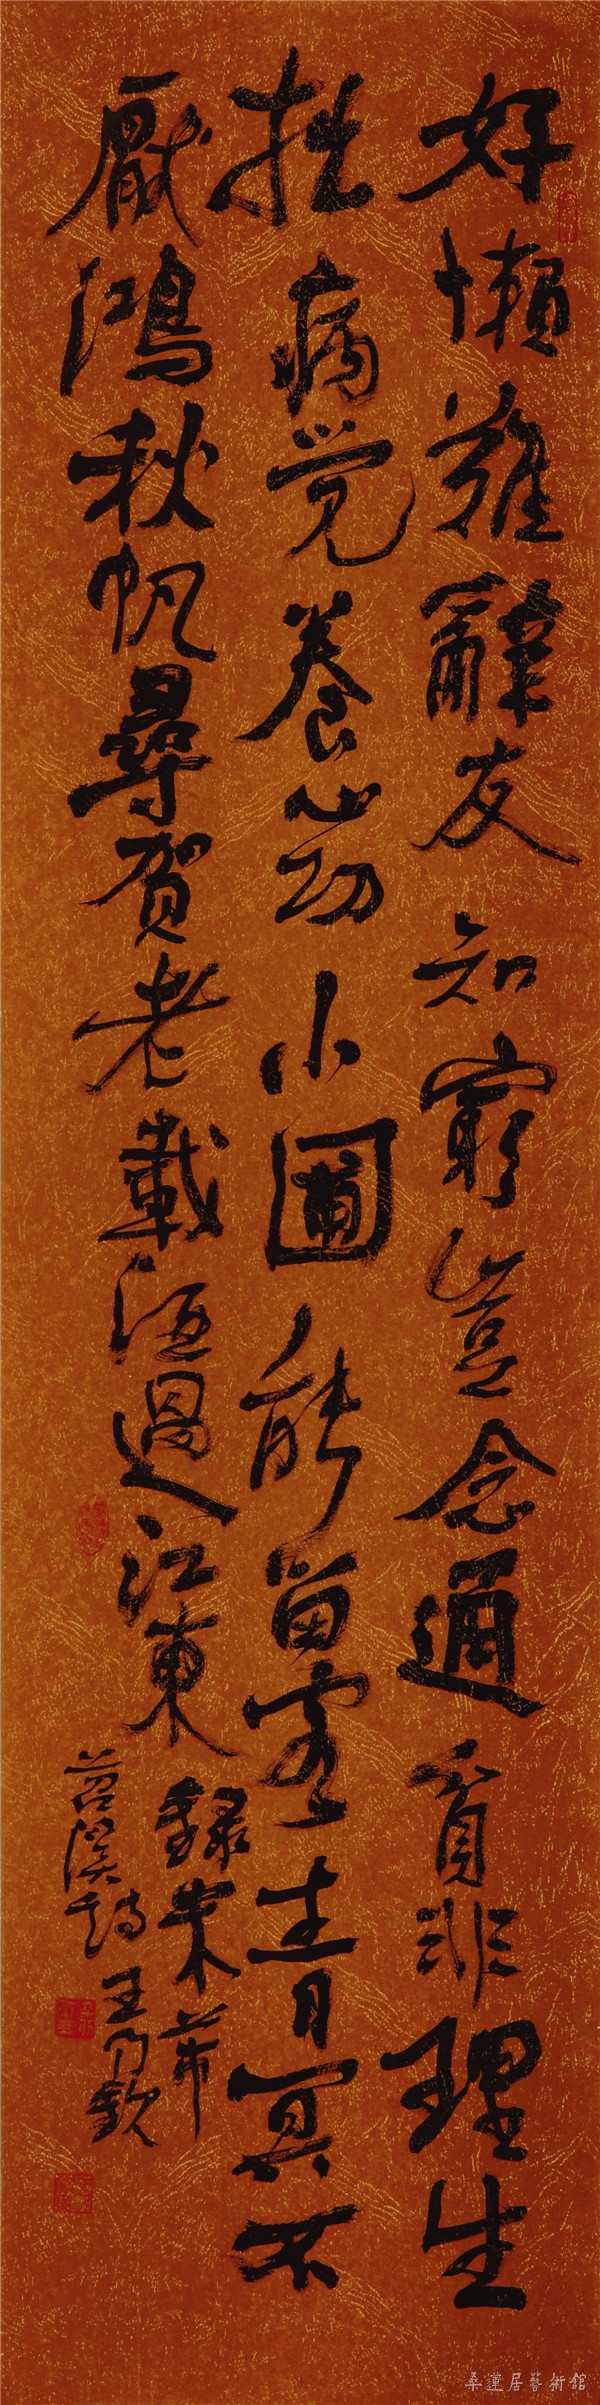 好懶難辭友知窮豈念通貧非理生
拙病觉養心功小圃能留客青冥不
厭鴻秋帆尋贺老載酒過江東
錄米芾
苕溪詩 王乃欽
桑蓮居藝術館